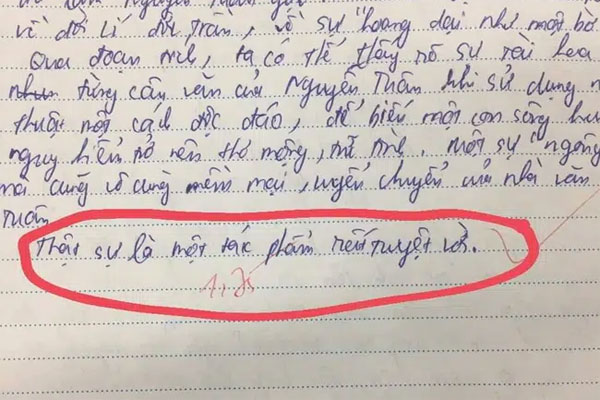 về đời Lí đời Trần, về sự "hoang dại như một bờ
Qua đoạn trích, ta có thể thấy rõ sự tài hoa
từng câu văn của Nguyễn Tuân khi sử dụng n
thuật một cách độc đáo, để biến một con sông hu
nguy hiểm trở nên thơ mộng, mĩ mẹ. Một sự "ngông
mà cũng vô cùng mềm mại, uyển chuyển của nhà văn
Tuân
Thật sự là một tác phẩm rất tuyệt vời.
1,75